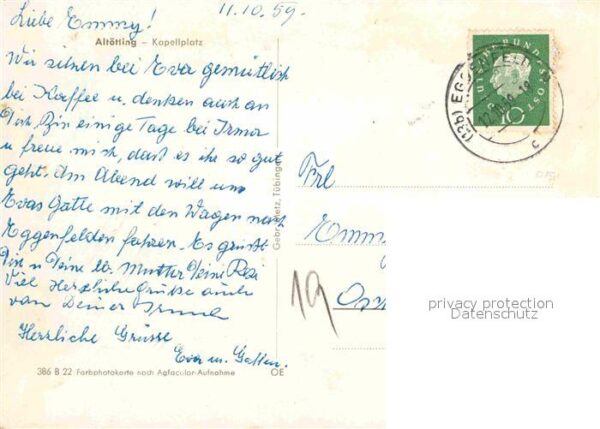 11.10.59.
Liebe Emmy!
Altötting – Kapellplatz
Wir sitzen bei Eva gemütlich
bei Kaffee u. denken auch an
Dich. Bin einige Tage bei Irma
u freue mich, dass es ihr so gut
geht. Am Abend will uns
Evas Gatte mit den Wagen nach
Eggenfelden fahren. Es grüsst
Dich u Deine lb. Mutter Deine Resi
Viel Herzliche Grüsse auch
von Deiner Irma
Herzliche Grüsse
Eva u. Gatten.
386 B 22 Farbphotokarte nach Agfacolor-Aufnahme OE
Gebr. Metz, Tübingen
DEUTSCHE BUNDESPOST
10
(13b) EGGENFELDEN
c
Frl
Emm
19
privacy protection
Datenschutz